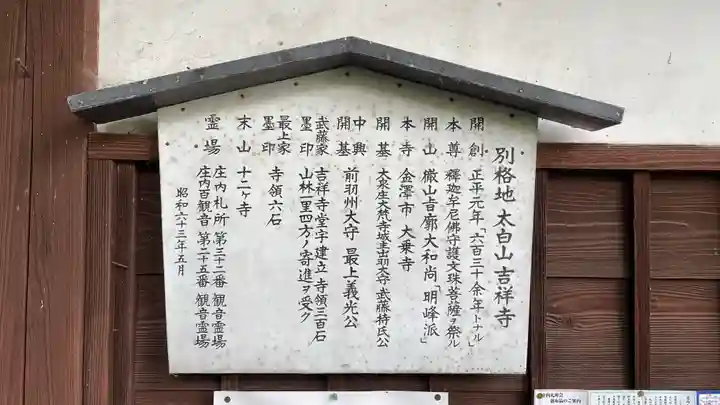 別格地 太白山 吉祥寺
開創 正平元年「六百三十余年トナル」
本尊 釋迦牟尼佛守護文珠菩薩ヲ祭ル
開山 巌山旨廓大和尚「明峰派」
本寺 金澤市 大乗寺
開基 大泉庄大梵寺城主出羽太守 武藤持氏公
中興
開基 前羽州大守 最上義光公
武藤家
墨印 吉祥寺堂宇建立 寺領三百石
山林一里四方ノ寄進ヲ受ク
最上家
墨印 寺領六石
末山 十二ヶ寺
霊場 庄内札所 第三十二番 観音霊場
庄内百観音 第二十五番 観音霊場
昭和六十三年五月